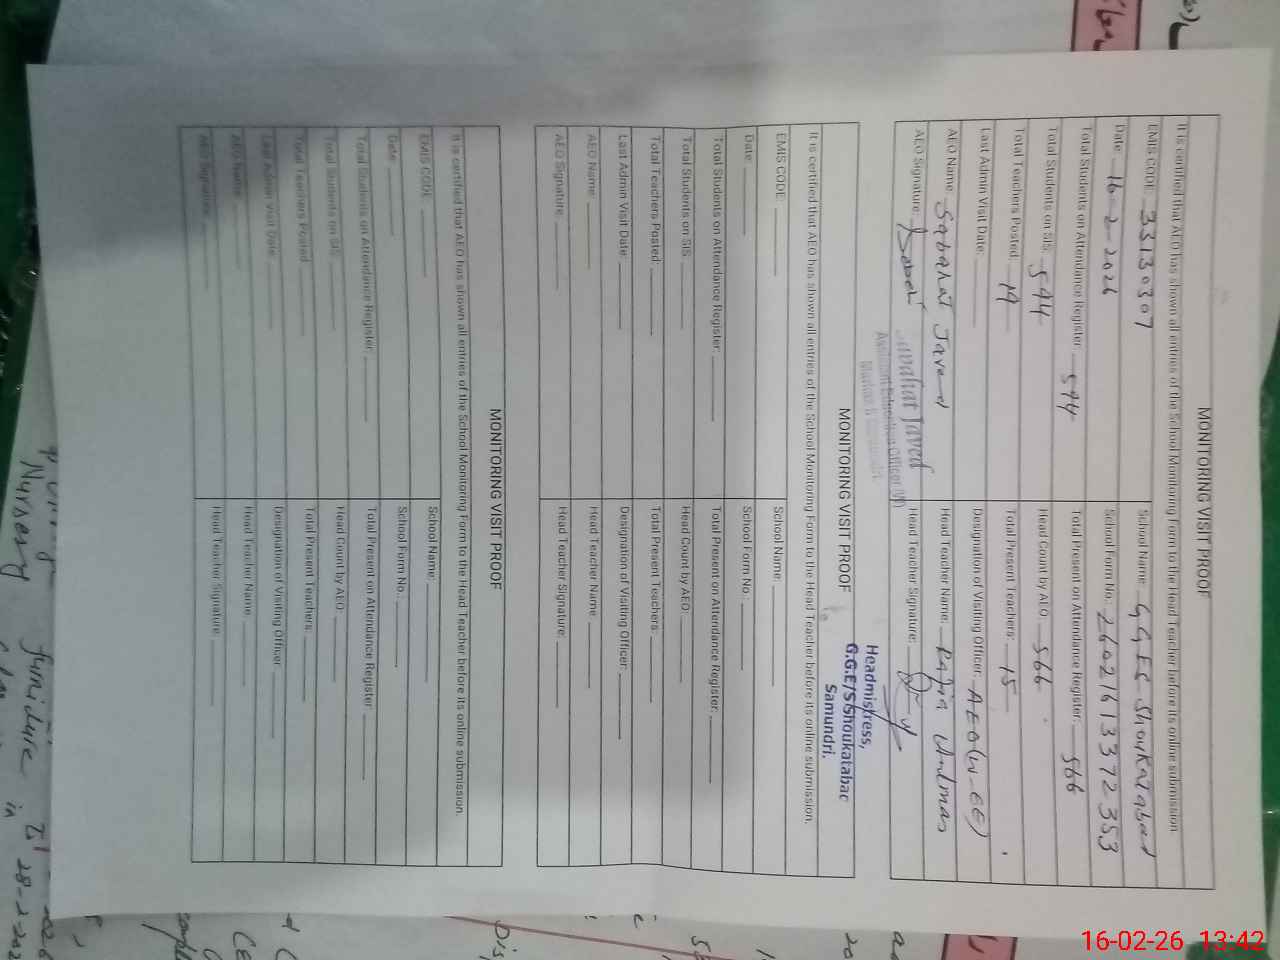 MONITORING VISIT PROOF
It is certified that AEO has shown all entries of the School Monitoring Form to the Head Teacher before its online submission.
EMIS CODE: 33130307 School Name: GGES Shoukatabad
Date: 16-2-2026 School Form No.: 26021613372353
Total Students on Attendance Register: 594 Total Present on Attendance Register: 566
Total Students on SIS: 594 Head Count by AEO: 566
Total Teachers Posted: 19 Total Present Teachers: 15
Last Admin Visit Date: Designation of Visiting Officer: AEO(W-EE)
AEO Name: Sabahat Javed Head Teacher Name: Razia Anlmas
AEO Signature: Head Teacher Signature:
Javed
Assistant Education Officer (W)
Headmistress,
G.G.E/S Shoukatabad
Samundri.
MONITORING VISIT PROOF
It is certified that AEO has shown all entries of the School Monitoring Form to the Head Teacher before its online submission.
EMIS CODE: School Name:
Date: School Form No.:
Total Students on Attendance Register: Total Present on Attendance Register:
Total Students on SIS: Head Count by AEO:
Total Teachers Posted: Total Present Teachers:
Last Admin Visit Date: Designation of Visiting Officer:
AEO Name: Head Teacher Name:
AEO Signature: Head Teacher Signature:
MONITORING VISIT PROOF
It is certified that AEO has shown all entries of the School Monitoring Form to the Head Teacher before its online submission.
EMIS CODE: School Name:
Date: School Form No.:
Total Students on Attendance Register: Total Present on Attendance Register:
Total Students on SIS: Head Count by AEO:
Total Teachers Posted Total Present Teachers:
Last Admin Visit Date: Designation of Visiting Officer
AEO Name: Head Teacher Name:
AEO Signature: Head Teacher Signature:
Nursery furniture in
16-02-26 13:42